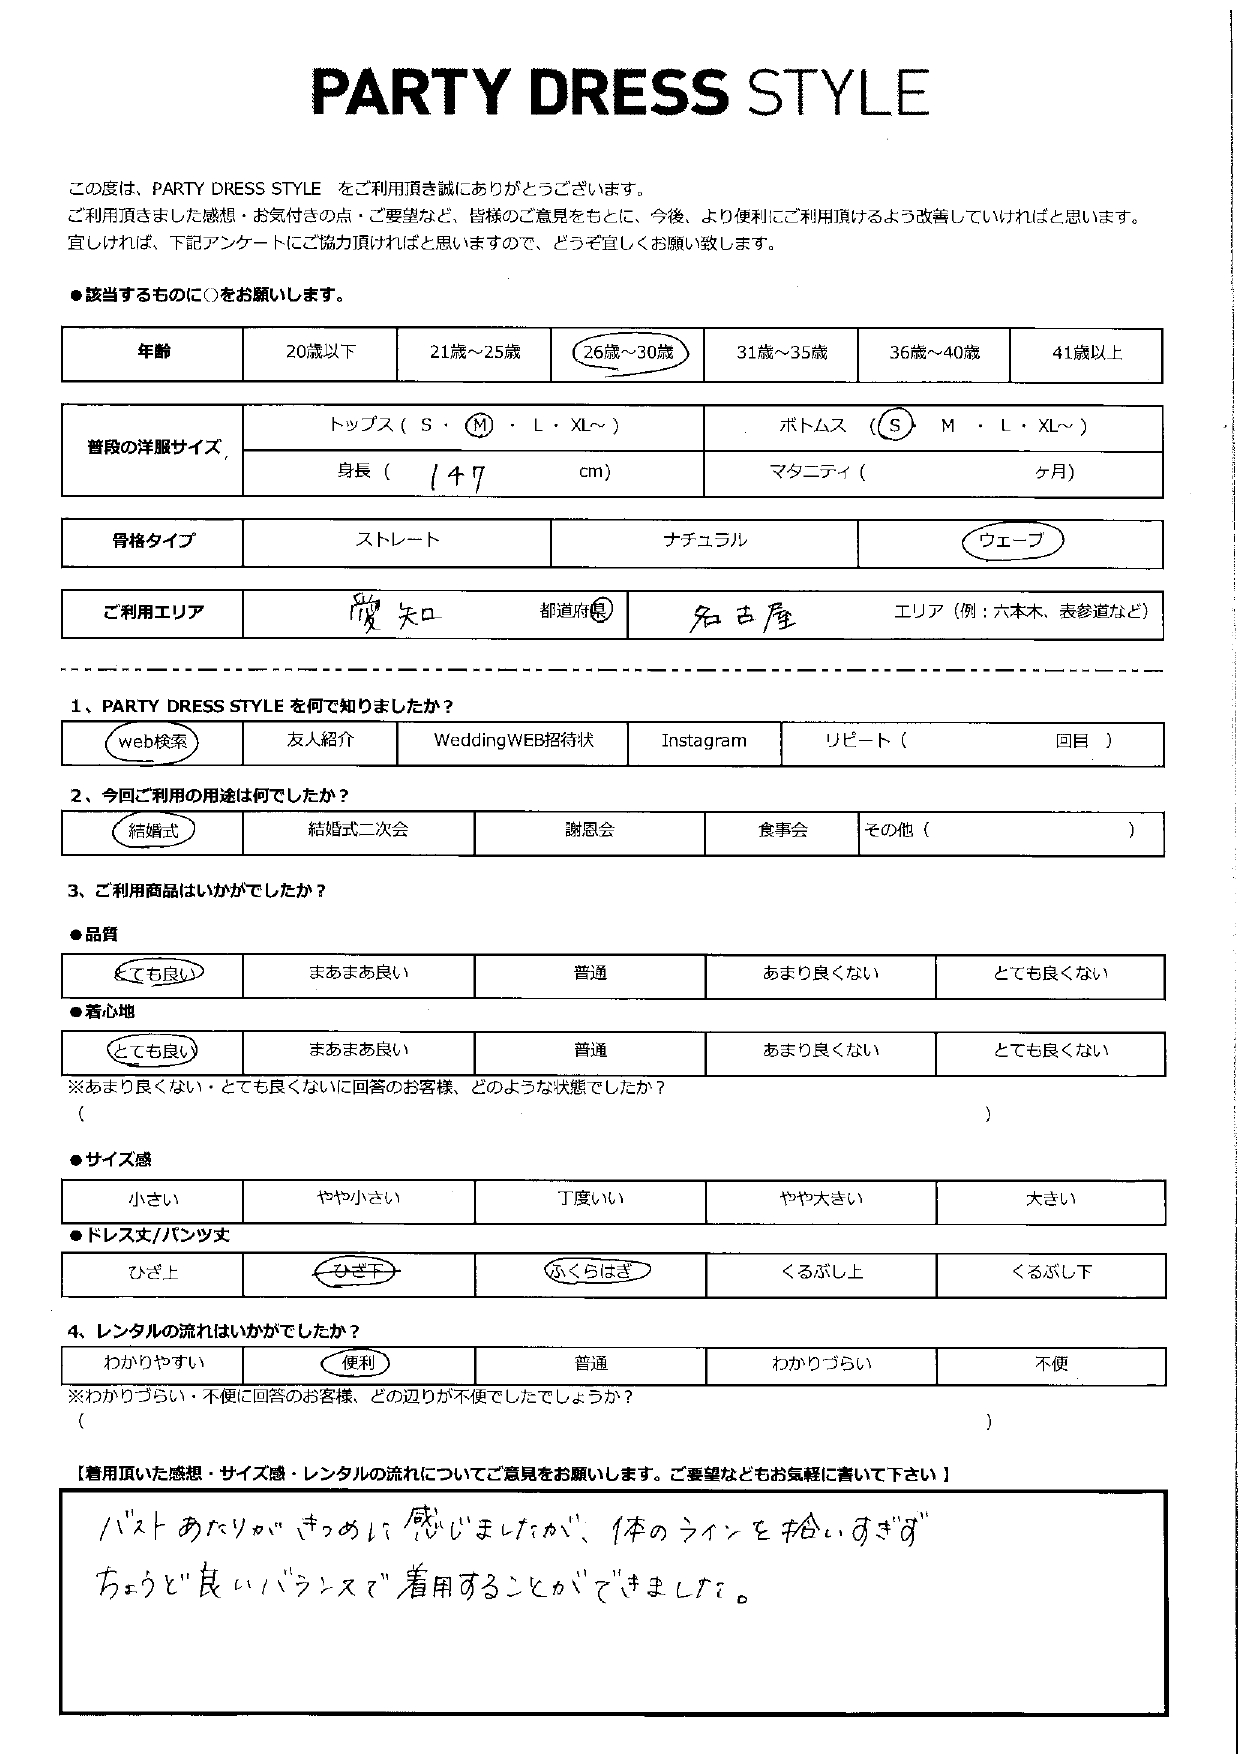 PARTY DRESS STYLE
この度は、PARTY DRESS STYLE をご利用頂き誠にありがとうございます。
ご利用頂きました感想・お気付きの点・ご要望など、皆様のご意見をもとに、今後、より便利にご利用頂けるよう改善していければと思います。
宜しければ、下記アンケートにご協力頂ければと思いますので、どうぞ宜しくお願い致します。
●該当するものに○をお願いします。
年齢 20歳以下 21歳～25歳 26歳～30歳 31歳～35歳 36歳～40歳 41歳以上
普段の洋服サイズ トップス ( S ・ M ・ L ・ XL～ ) ボトムス ( S ・ M ・ L ・ XL～ )
身長 ( 147 cm) マタニティ ( ヶ月)
骨格タイプ ストレート ナチュラル ウェーブ
ご利用エリア 愛知 都道府県 名古屋 エリア（例：六本木、表参道など）
1、PARTY DRESS STYLE を何で知りましたか？
web検索 友人紹介 WeddingWEB招待状 Instagram リピート ( 回目 )
2、今回ご利用の用途は何でしたか？
結婚式 結婚式二次会 謝恩会 食事会 その他 ( )
3、ご利用商品はいかがでしたか？
●品質
とても良い まあまあ良い 普通 あまり良くない とても良くない
●着心地
とても良い まあまあ良い 普通 あまり良くない とても良くない
※あまり良くない・とても良くないに回答のお客様、どのような状態でしたか？
( )
●サイズ感
小さい やや小さい 丁度いい やや大きい 大きい
●ドレス丈/パンツ丈
ひざ上 ひざ下 ふくらはぎ くるぶし上 くるぶし下
4、レンタルの流れはいかがでしたか？
わかりやすい 便利 普通 わかりづらい 不便
※わかりづらい・不便に回答のお客様、どの辺りが不便でしたでしょうか？
( )
【着用頂いた感想・サイズ感・レンタルの流れについてご意見をお願いします。ご要望などもお気軽に書いて下さい 】
バストあたりがきつめに感じましたが、体のラインを拾いすぎず
ちょうど良いバランスで着用することができました。